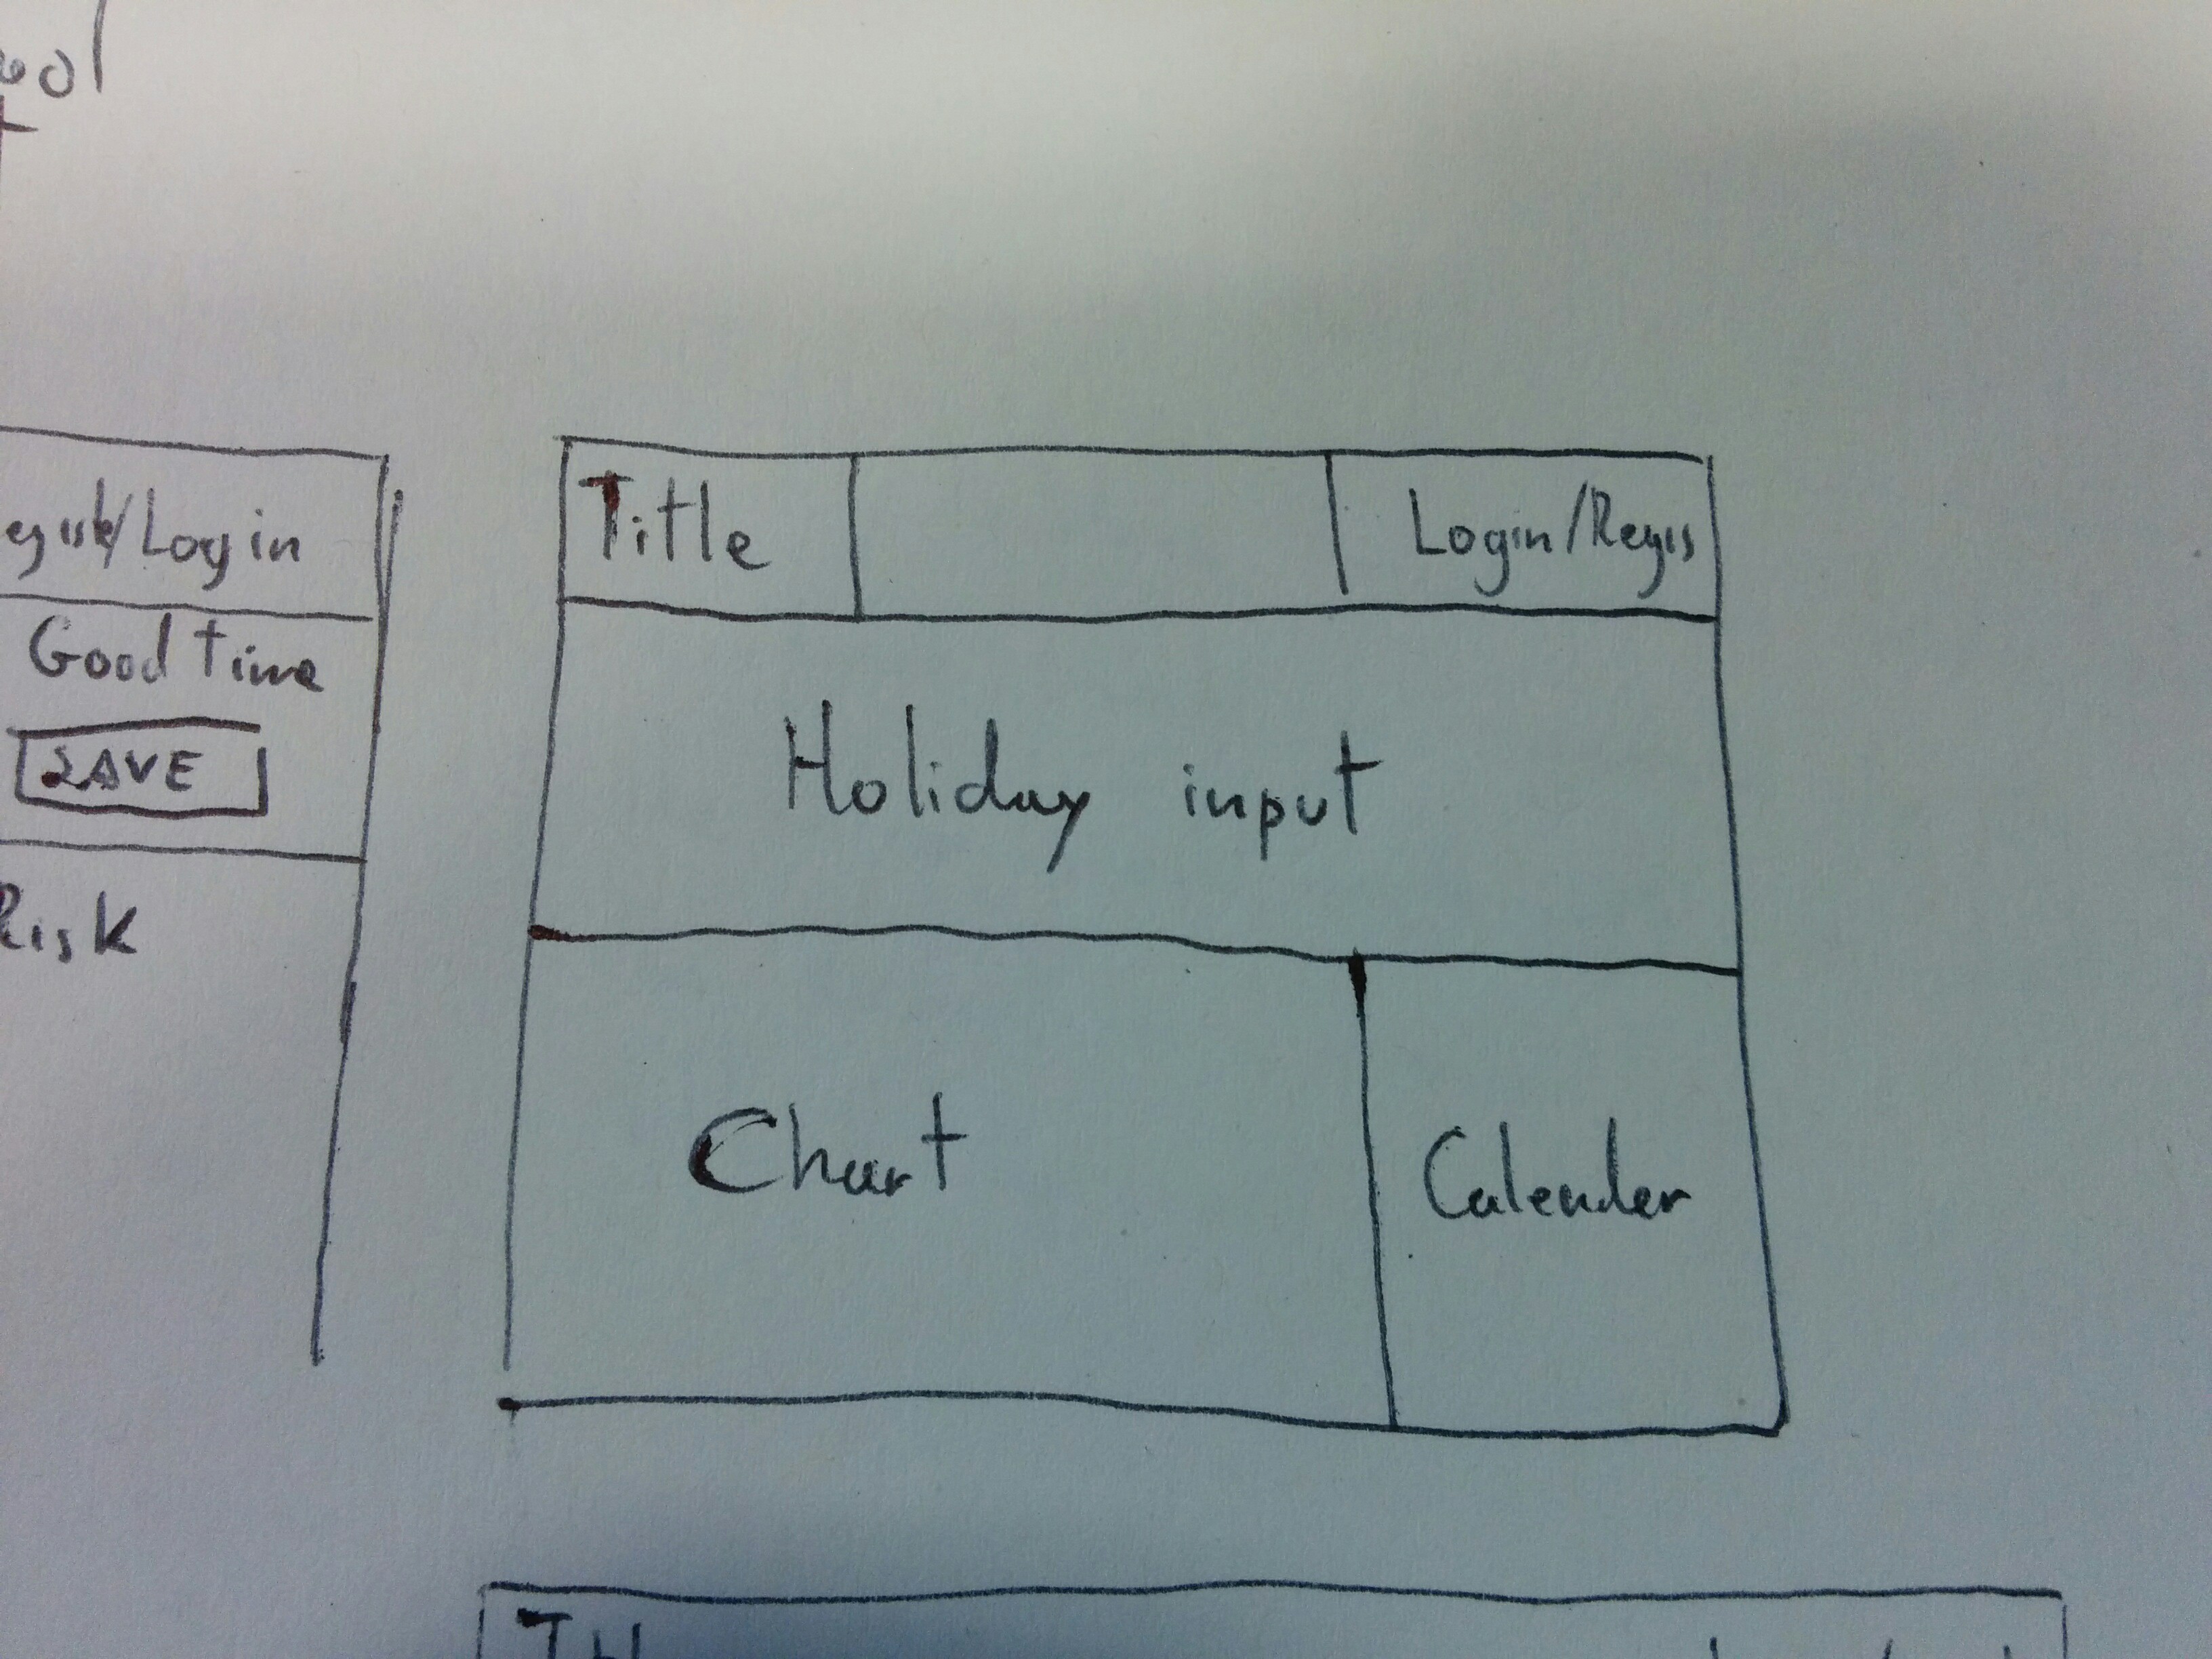 Login
Good time
SAVE
Risk
Title
Login/Regis
Holiday input
Chart
Calender